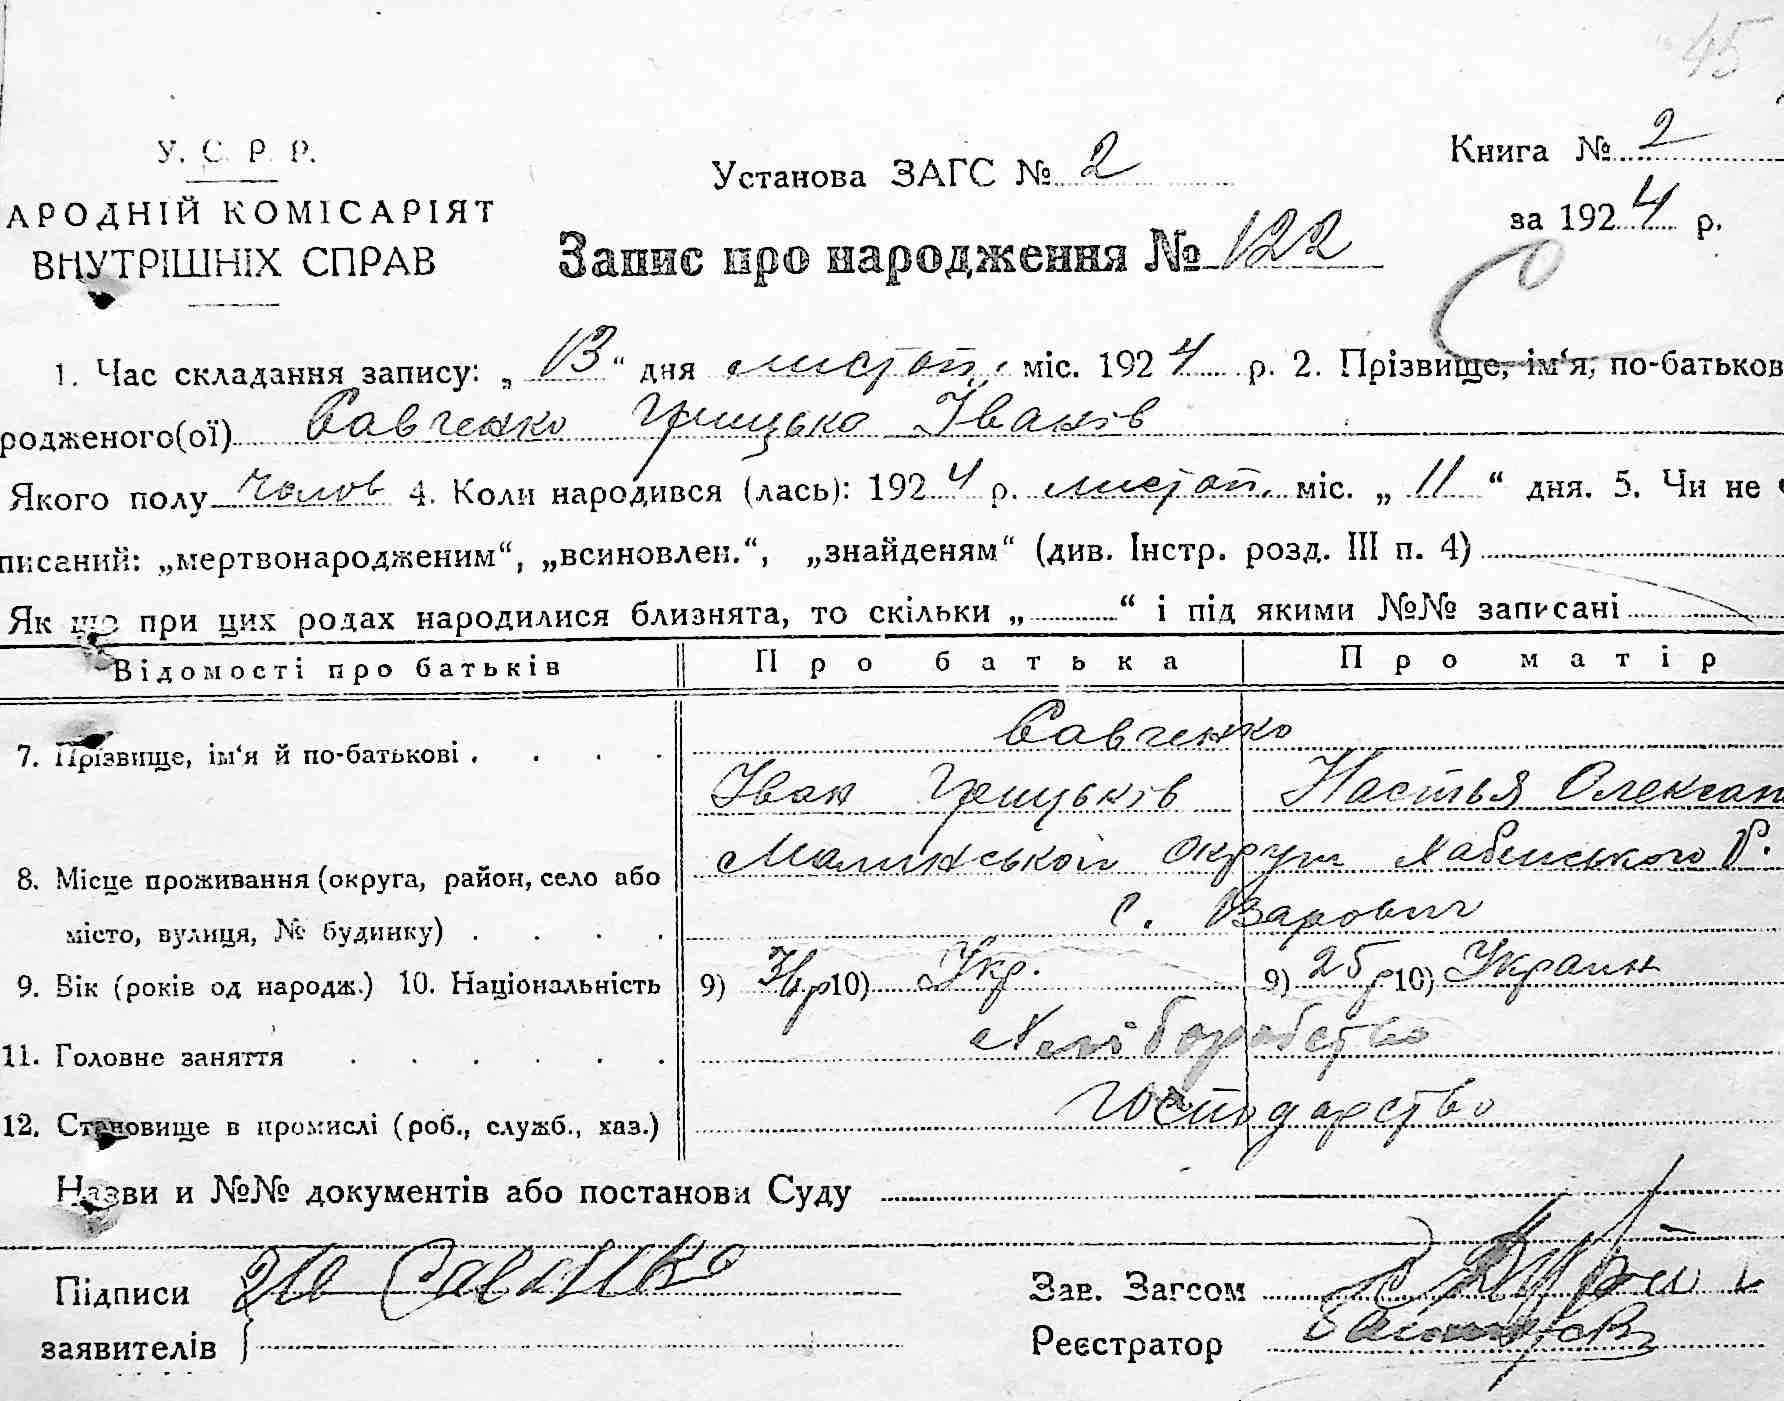 45
У. С. Р. Р.
АРОДНІЙ КОМІСАРІЯТ
ВНУТРІШНІХ СПРАВ
Установа ЗАГС № 2
Книга № 2
за 1924 р.
Запис про народження № 122
С
1. Час складання запису: „ 13 “ дня листоп. міс. 1924 р. 2. Прізвище, ім‘я, по-батьков
родженого(ої) Савченко Грицько Іванів
Якого полу чолов 4. Коли народився (лась): 1924 р. листоп. міс. „ 11 “ дня. 5. Чи не
писаний: „мертвонародженим“, „всиновлен.“, „знайденям“ (див. Інстр. розд. III п. 4)
Як що при цих родах народилися близнята, то скільки „ “ і під якими №№ записані
Відомості про батьків Про батька Про матір
7. Прізвище, ім‘я й по-батькові . . . . Савченко
Іван Грицьків Настья Олексан
8. Місце проживання (округа, район, село або Малинської Округи Хабенського Р.
місто, вулиця, № будинку) . . . . с. Варович
9. Вік (років од народж.) 10. Національність 9) р 10) Укр. 9) 25 р 10) Украин
11. Головне заняття . . . . . . Хліборобство
12. Становище в промислі (роб., служб., хаз.) Господарство
Назви и №№ документів або постанови Суду
Підписи Савченко
заявителів
Зав. Загсом
Реєстратор